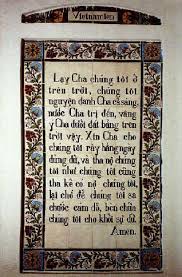 Vietnamien
Lạy Cha chúng tôi ở
trên trời, chúng tôi
nguyện danh Cha cả sáng,
nước Cha trị đến, vâng
ý Cha dưới đất bằng trên
trời vậy. Xin Cha cho
chúng tôi rày hằng ngày
dùng đủ, và tha nợ chúng
tôi như chúng tôi cũng
tha kẻ có nợ chúng tôi,
lại chớ để chúng tôi sa
chước cám dỗ, bèn chữa
chúng tôi cho khỏi sự dữ.
Amen.